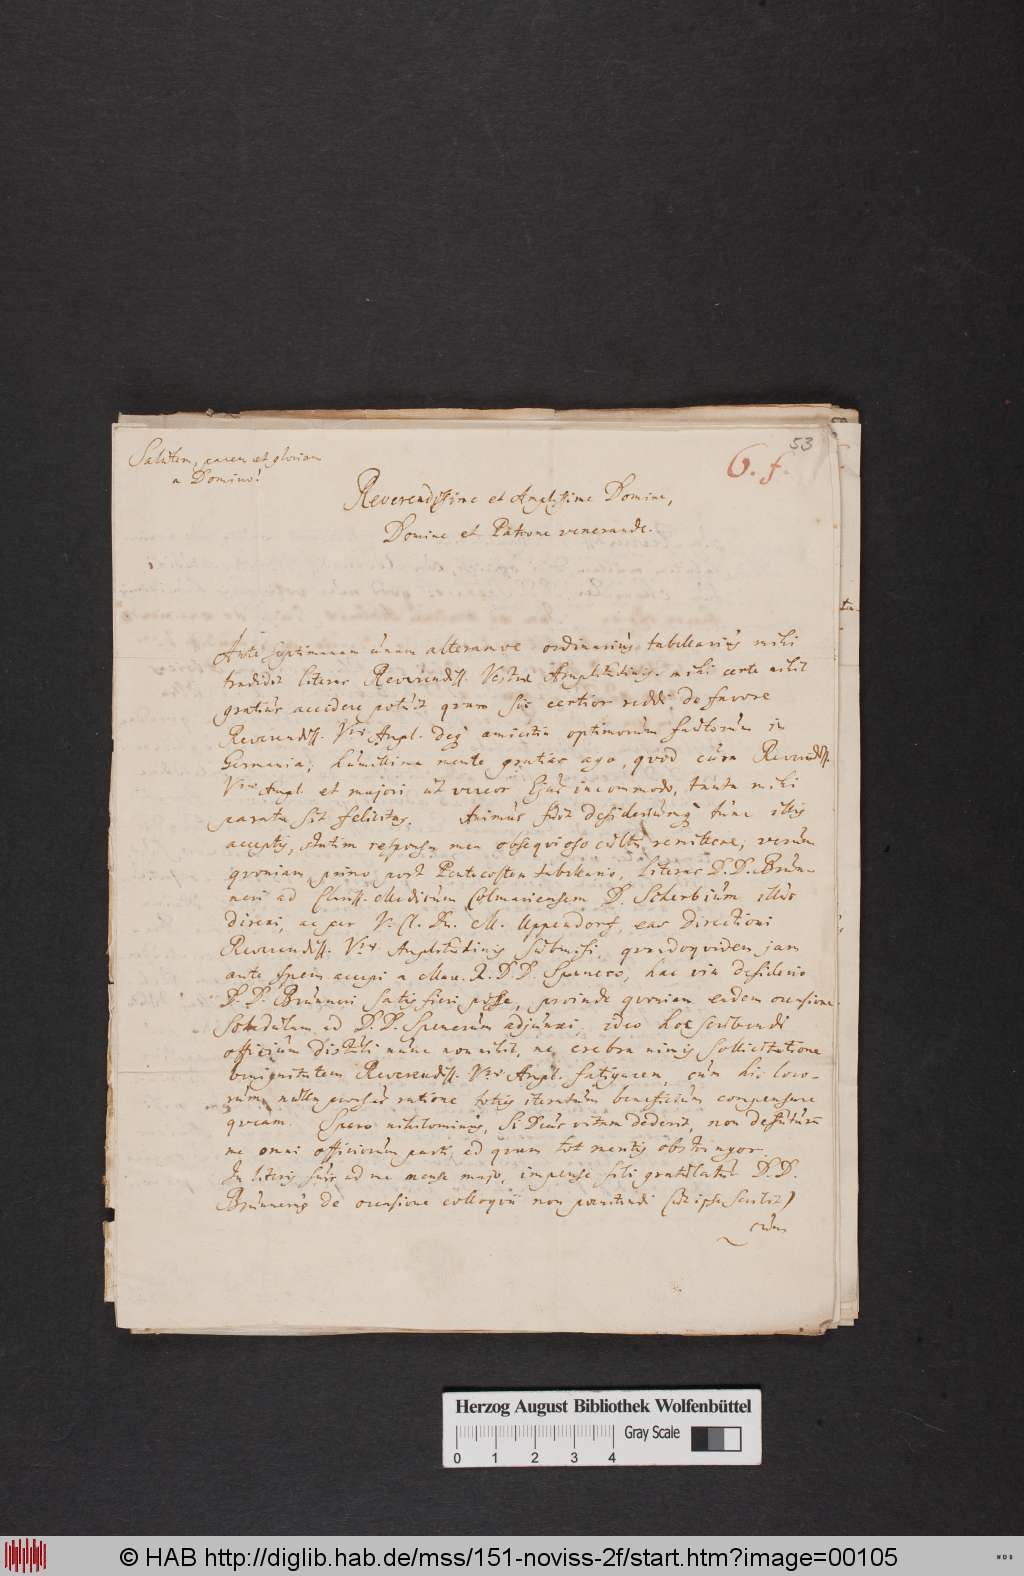 Salutem, pacem et gloriam
a Domino!
53
6. f.
Reverendissime et Amplissime Domine,
Domine et Patrone venerande.
Ante septimanam unam alteramve ordinarius tabellarius mihi
tradidit literas Reverendiss. Vestrae Amplitudinis. mihi certe nihil
gratius accidere potuit quam sic certior reddi de favore
Reverendiss. Vrae Ampl. deq amicitia optimorum fautorum in
Germania; humillima mente gratias ago, quod cura Reverendiss.
Vrae Ampl. et majori, ut vereor Ejus incommodo, tanta mihi
parata sit felicitas. Animus fuit desideriumq tunc illis
acceptis, statim responsa mea obsequioso cultu remittere; verum
quoniam primo post Pentecosten tabellario, literas D. D. Brun-
neri ad Clariss. Medicum Colmariensem D. Scherbium illuc
direxi, ac per V. Cl. Dn. M. Uppendorf, eas directioni
Reverendiss. Vrae Amplitudinis submisi, quandoquidem jam
ante spem accepi a Max. R. D. D. Spenero, hac via desiderio
D. D. Brunneri satis fieri posse, proinde quoniam eadem occasione
schedulam ad D. D. Spenerum adjunxi, ideo hoc scribendi
officium distuli nunc nonnihil, ne crebra nimis sollicitatione
benignitatem Reverendiss. Vrae Ampl. fatigarem, cum hic loco-
rum nulla prorsus ratione toties iteratum beneficium compensare
queam. Spero nihilominus, si Deus vitam dederit, non defuturum
me omni officiorum parti, ad quam tot meritis obstringor.
In literis suis ad me mense majo, impense sibi gratulatur D. D.
Brunnerus de occasione colloquii non poenitendi (ut ipse scribit)
cum
Herzog August Bibliothek Wolfenbüttel
Gray Scale
0 1 2 3 4
© HAB http://diglib.hab.de/mss/151-noviss-2f/start.htm?image=00105